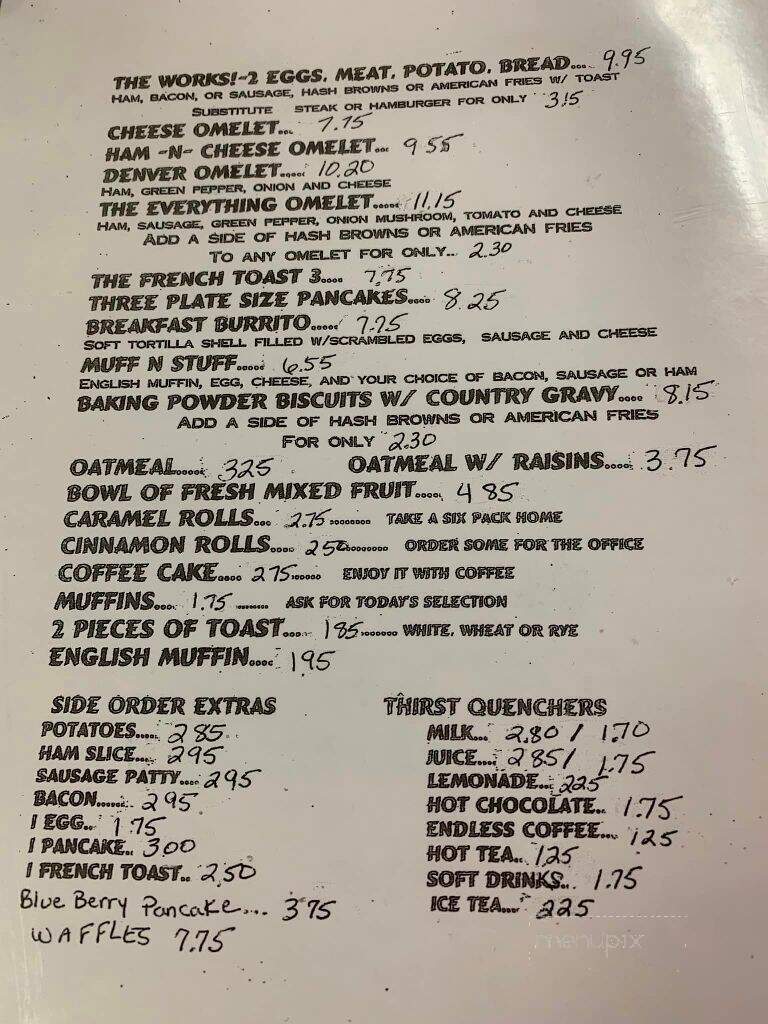 THE WORKS!-2 EGGS, MEAT, POTATO, BREAD.... 9.95
HAM, BACON, OR SAUSAGE, HASH BROWNS OR AMERICAN FRIES W/ TOAST
SUBSTITUTE STEAK OR HAMBURGER FOR ONLY 3.15
CHEESE OMELET.... 7.75
HAM -N- CHEESE OMELET.... 9 55
DENVER OMELET..... 10.20
HAM, GREEN PEPPER, ONION AND CHEESE
THE EVERYTHING OMELET..... 11.15
HAM, SAUSAGE, GREEN PEPPER, ONION MUSHROOM, TOMATO AND CHEESE
ADD A SIDE OF HASH BROWNS OR AMERICAN FRIES
TO ANY OMELET FOR ONLY.. 2.30
THE FRENCH TOAST 3.... 7.75
THREE PLATE SIZE PANCAKES.... 8.25
BREAKFAST BURRITO..... 7.75
SOFT TORTILLA SHELL FILLED W/SCRAMBLED EGGS, SAUSAGE AND CHEESE
MUFF N STUFF..... 6.55
ENGLISH MUFFIN, EGG, CHEESE, AND YOUR CHOICE OF BACON, SAUSAGE OR HAM
BAKING POWDER BISCUITS W/ COUNTRY GRAVY.... 8.15
ADD A SIDE OF HASH BROWNS OR AMERICAN FRIES
FOR ONLY 2.30
OATMEAL..... 325 OATMEAL W/ RAISINS..... 3.75
BOWL OF FRESH MIXED FRUIT.... 4 85
CARAMEL ROLLS.... 2.75 ........ TAKE A SIX PACK HOME
CINNAMON ROLLS.... 250......... ORDER SOME FOR THE OFFICE
COFFEE CAKE.... 275...... ENJOY IT WITH COFFEE
MUFFINS.... 1.75 ........ ASK FOR TODAY'S SELECTION
2 PIECES OF TOAST.... 185....... WHITE, WHEAT OR RYE
ENGLISH MUFFIN..... 195
SIDE ORDER EXTRAS
POTATOES..... 285
HAM SLICE.... 295
SAUSAGE PATTY.... 295
BACON...... 295
1 EGG.. 1.75
1 PANCAKE.. 300
1 FRENCH TOAST.. 2.50
Blue Berry Pancake... 375
WAFFLES 7.75
THIRST QUENCHERS
MILK... 2.80 / 1.70
JUICE.... 285/ 1.75
LEMONADE... 225
HOT CHOCOLATE.. 1.75
ENDLESS COFFEE... 125
HOT TEA.. 125
SOFT DRINKS.. 1.75
ICE TEA.... 225
menupix